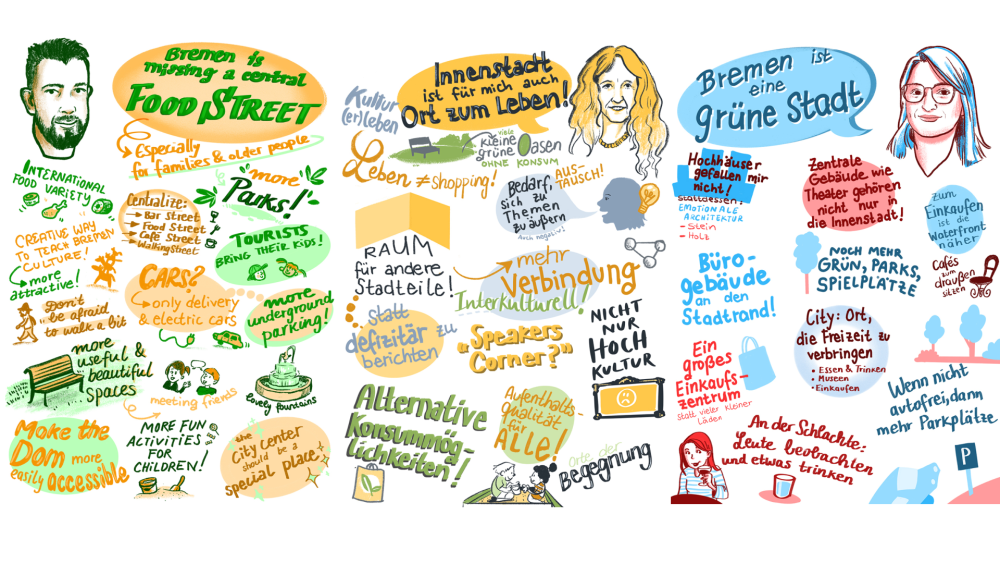 Bremen is
missing a central
FOOD STREET
Especially
for families & older people
INTERNATIONAL
FOOD VARIETY
more
PARKS!
Centralize:
Bar Street
Food Street
Café Street
Walking Street
CREATIVE WAY
TO TEACH BREMEN
CULTURE!
more
attractive!
TOURISTS
BRING THEIR KIDS!
CARS?
only delivery
& electric cars
Don't
be afraid
to walk a bit
more
underground
parking!
more
useful &
beautiful
spaces
meeting friends
lovely fountains
Make the
Dom more
easily accessible
MORE FUN
ACTIVITIES
FOR
CHILDREN!
the
City Center
should be a
special place!
Innenstadt
ist für mich auch
Ort zum Leben!
Kultur
(er)leben
viele
kleine
grüne Oasen
OHNE KONSUM
Leben ≠ shopping!
Bedarf,
sich zu
Themen
zu äußern
Auch negativ!
AUS-
TAUSCH!
RAUM
für andere
Stadtteile!
mehr
Verbindung
Interkulturell!
statt
defizitär zu
berichten
"Speakers
Corner?"
NICHT
NUR
HOCH
KULTUR
Alternative
Konsummög-
lichkeiten!
Aufenthalts-
qualität
für
ALLE!
Orte der
Begegnung
Bremen ist
eine
grüne Stadt
Hochhäuser
gefallen mir
nicht!
stattdessen:
EMOTIONALE
ARCHITEKTUR
- Stein
- Holz
Zentrale
Gebäude wie
Theater gehören
nicht nur in
die Innenstadt!
zum
Einkaufen
ist die
Waterfront
näher
Büro-
gebäude
an den
Stadtrand!
NOCH MEHR
GRÜN, PARKS,
SPIELPLÄTZE
Cafés
zum
draußen
sitzen
City: Ort,
die Freizeit zu
verbringen
• Essen & Trinken
• Museen
• Einkaufen
Ein
großes
Einkaufs-
zentrum
statt vieler kleiner
Läden
Wenn nicht
autofrei, dann
mehr Parkplätze
An der Schlachte:
Leute beobachten
und etwas trinken
P